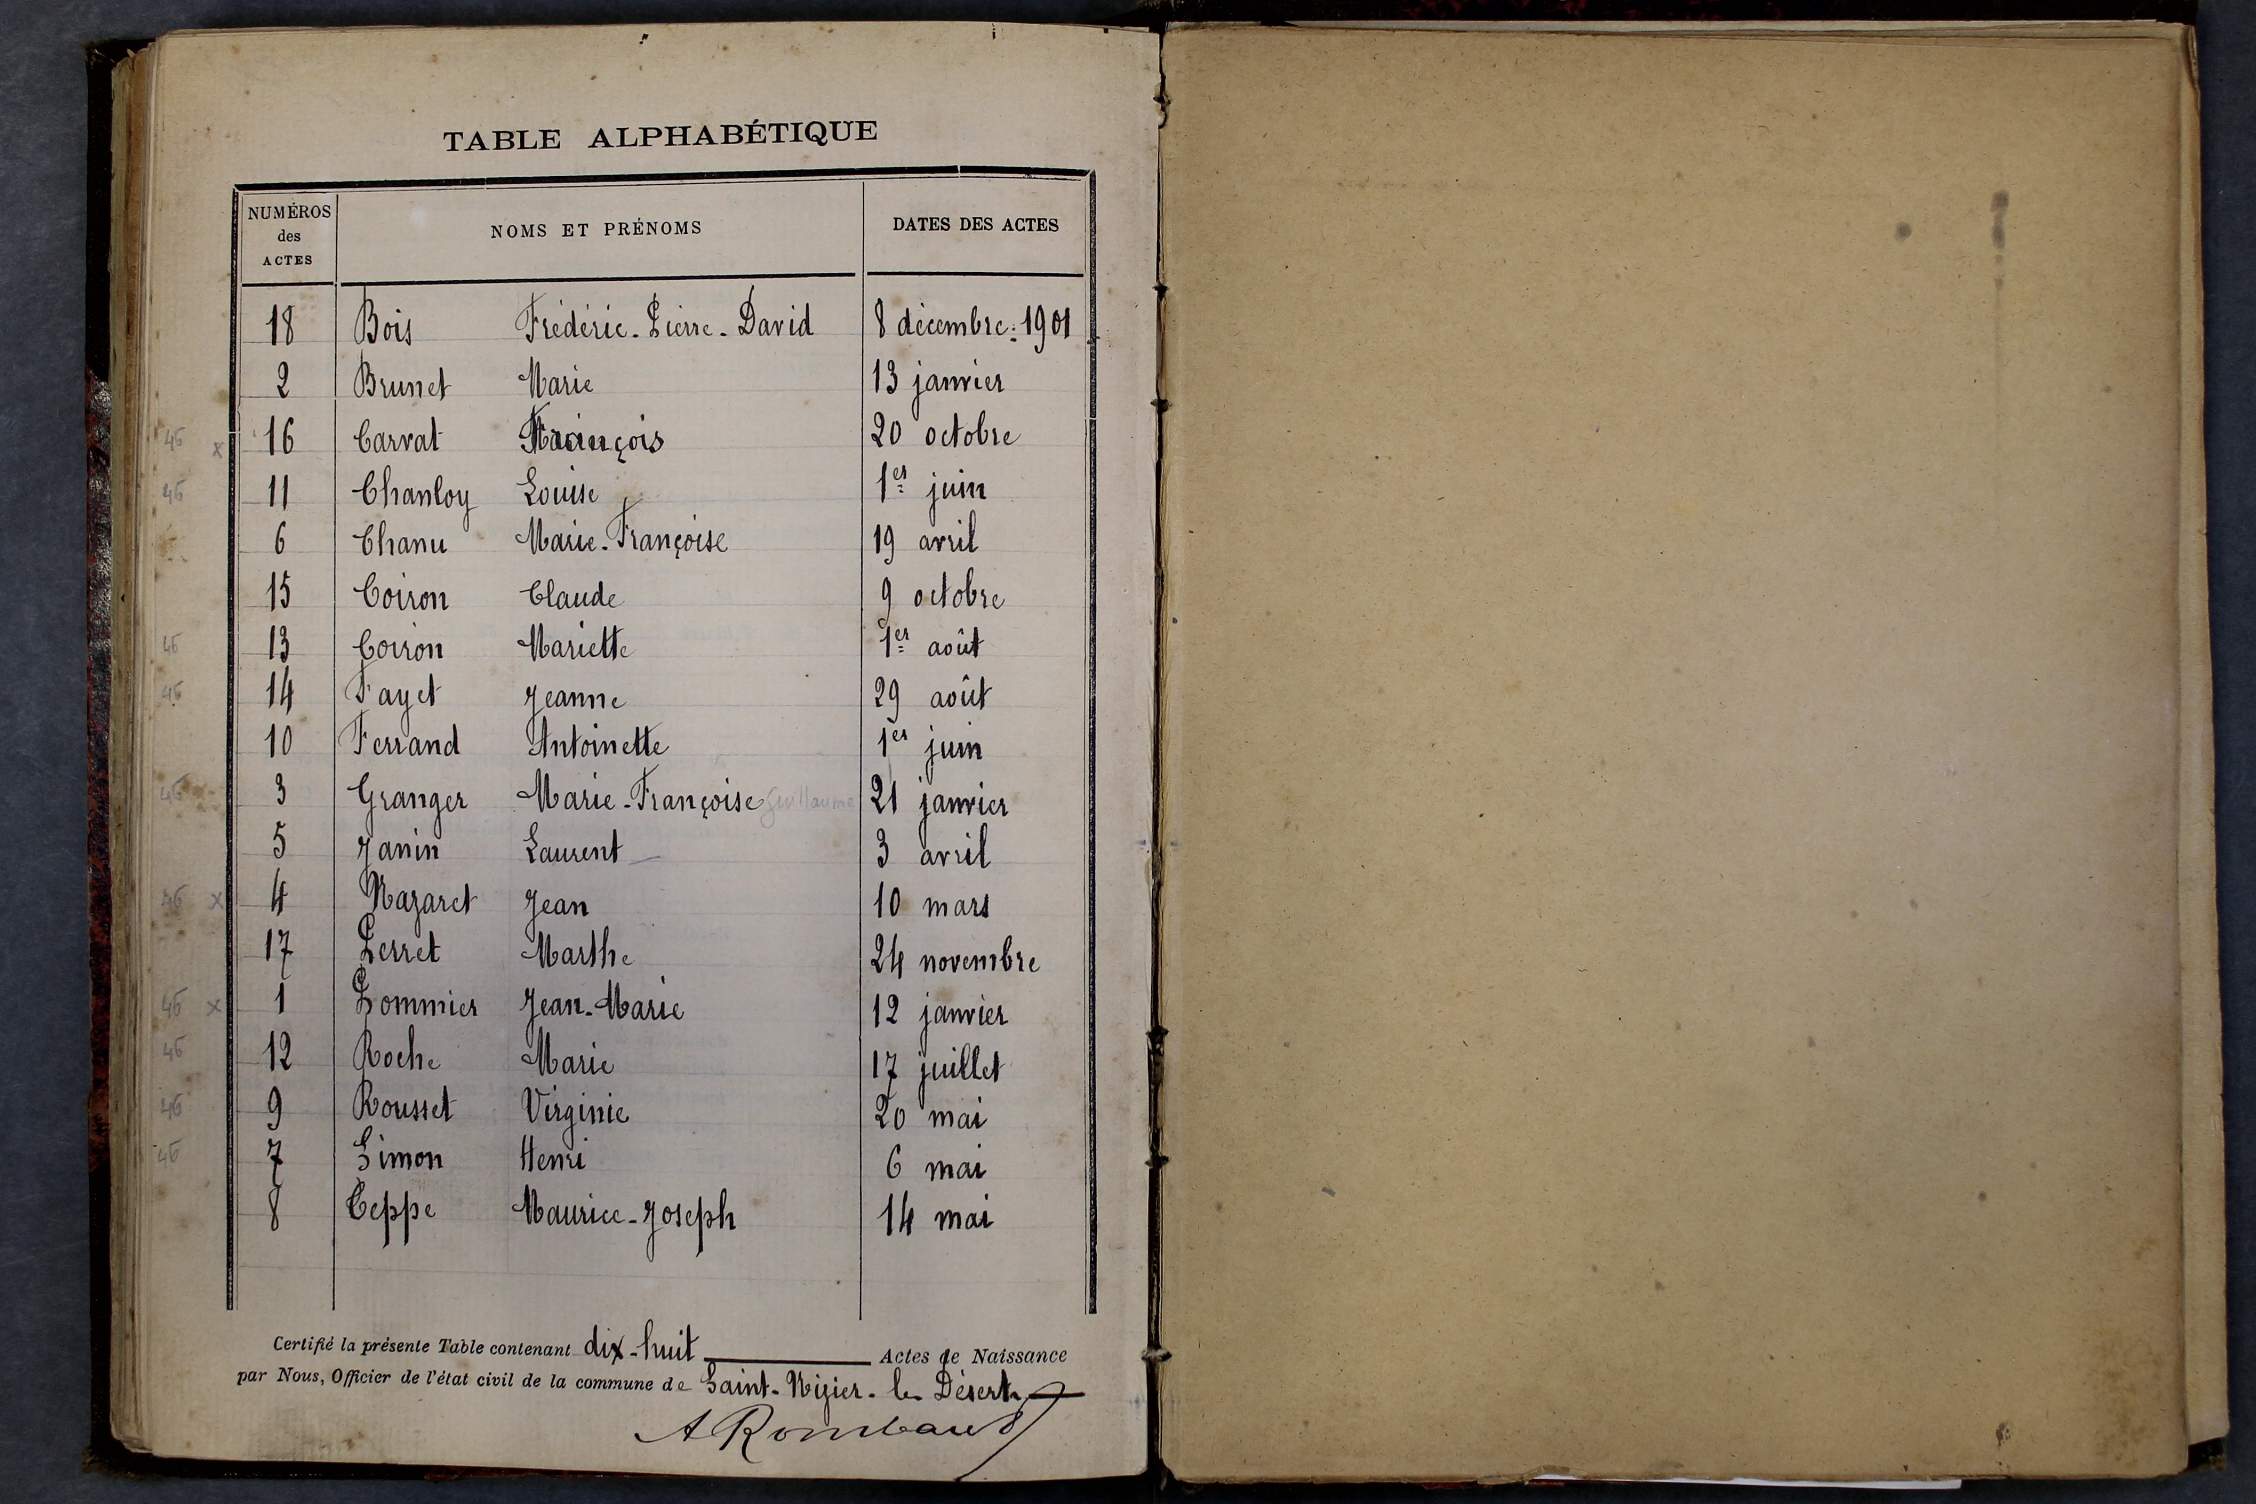 TABLE ALPHABÉTIQUE
NUMÉROS des ACTES NOMS ET PRÉNOMS DATES DES ACTES
18 Bois Frédéric-Pierre-David 8 décembre 1901
2 Brunet Marie 13 janvier
46 x 16 Carvat François 20 octobre
46 11 Chanloy Louise 1er juin
6 Chanu Marie-Françoise 19 avril
15 Coiron Claude 9 octobre
46 13 Coiron Mariette 1er août
46 14 Fayet Jeanne 29 août
10 Ferrand Antoinette 1er juin
46 3 Granger Marie-Françoise Guillaume 21 janvier
5 Janin Laurent 3 avril
46 x 4 Nazaret Jean 10 mars
17 Perret Marthe 24 novembre
46 x 1 Pommier Jean-Marie 12 janvier
46 12 Roche Marie 17 juillet
46 9 Rousset Virginie 20 mai
46 7 Simon Henri 6 mai
8 Teppe Maurice-Joseph 14 mai
Certifié la présente Table contenant dix-huit Actes de Naissance
par Nous, Officier de l'état civil de la commune de Saint-Nizier-le Désert
A Rombaud